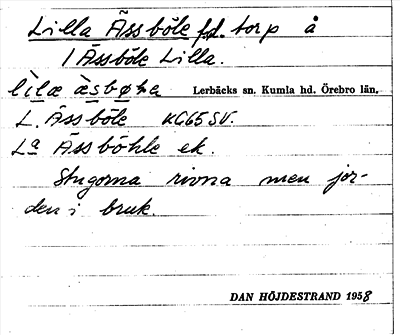 Lilla Ässböle f.d. torp å
1 Ässböle Lilla.
lìlæ æ̀sbøḷæ Lerbäcks sn. Kumla hd. Örebro län.
L. Ässböle KG65SV.
La Ässböhle ek.
Stugorna rivna men jor-
den i bruk.
DAN HÖJDESTRAND 1958